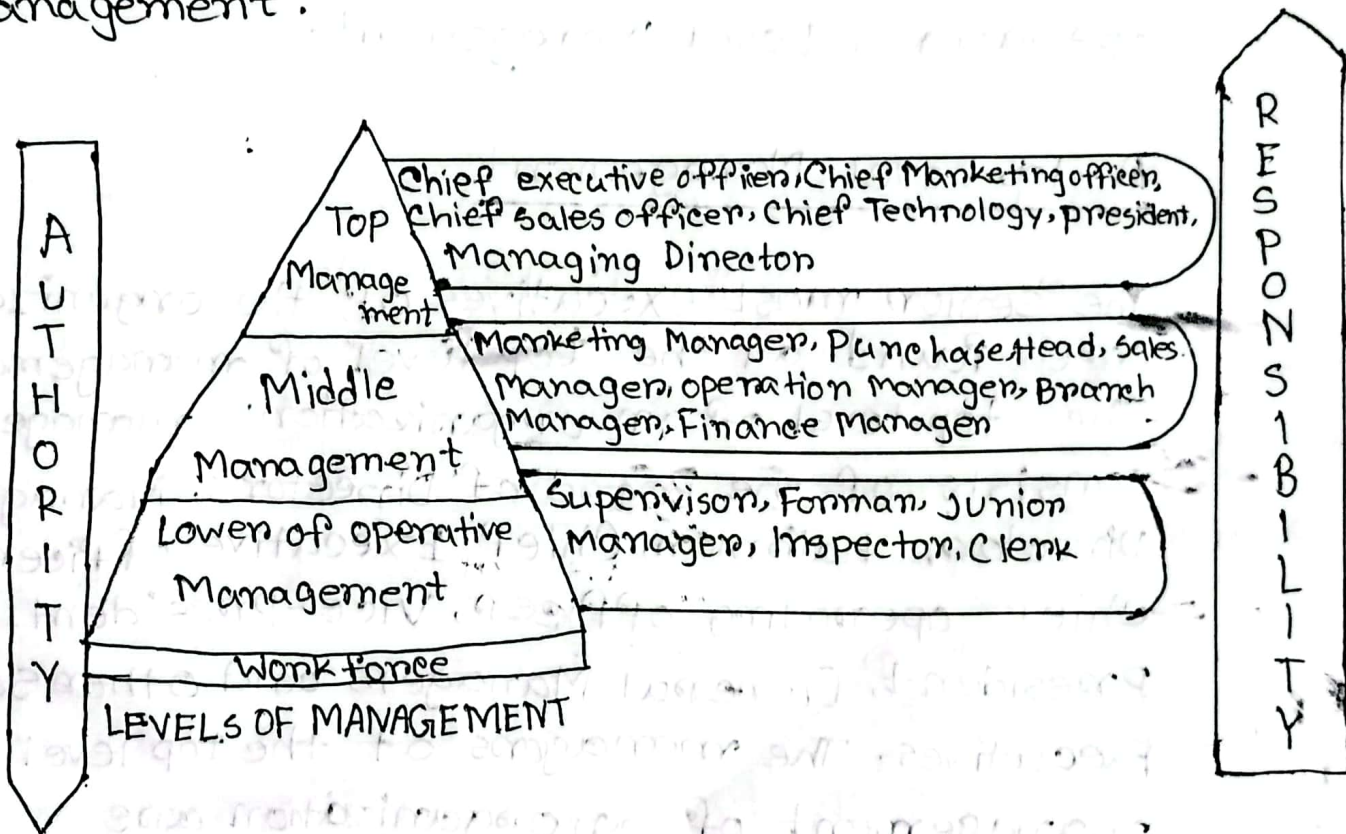 anagement.
AUTHORITY
Top
Manage
ment
Chief executive officer, Chief Marketing officer,
Chief sales officer, Chief Technology, president,
Managing Director
Middle
Management
Marketing Manager, Purchase Head, Sales
Manager, operation Manager, Branch
Manager, Finance Manager
Lower of operative
Management
Supervisor, Forman, Junior
Manager, Inspector, Clerk
Workforce
LEVELS OF MANAGEMENT
RESPONSIBILITY